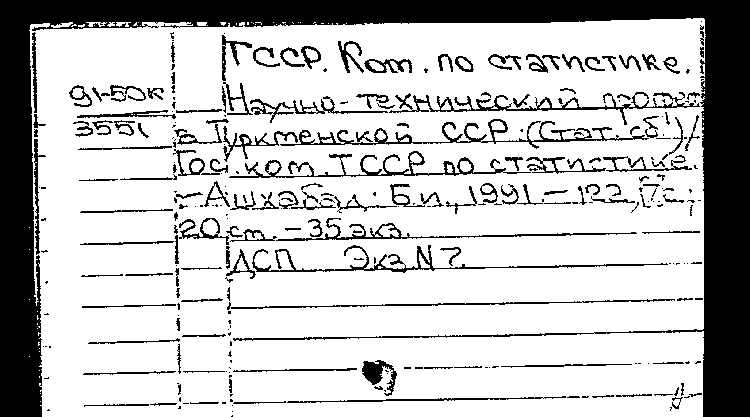 ТССР. Ком. по статистике.
91-50к
3551
Научно-технический прогресс
в Туркменской ССР: (Стат. сб.) /
Гос. ком. ТССР по статистике.
- Ашхабад: Б.и., 1991. - 122, [7] с.;
20 см. - 35 экз.
ДСП Экз. N 7.